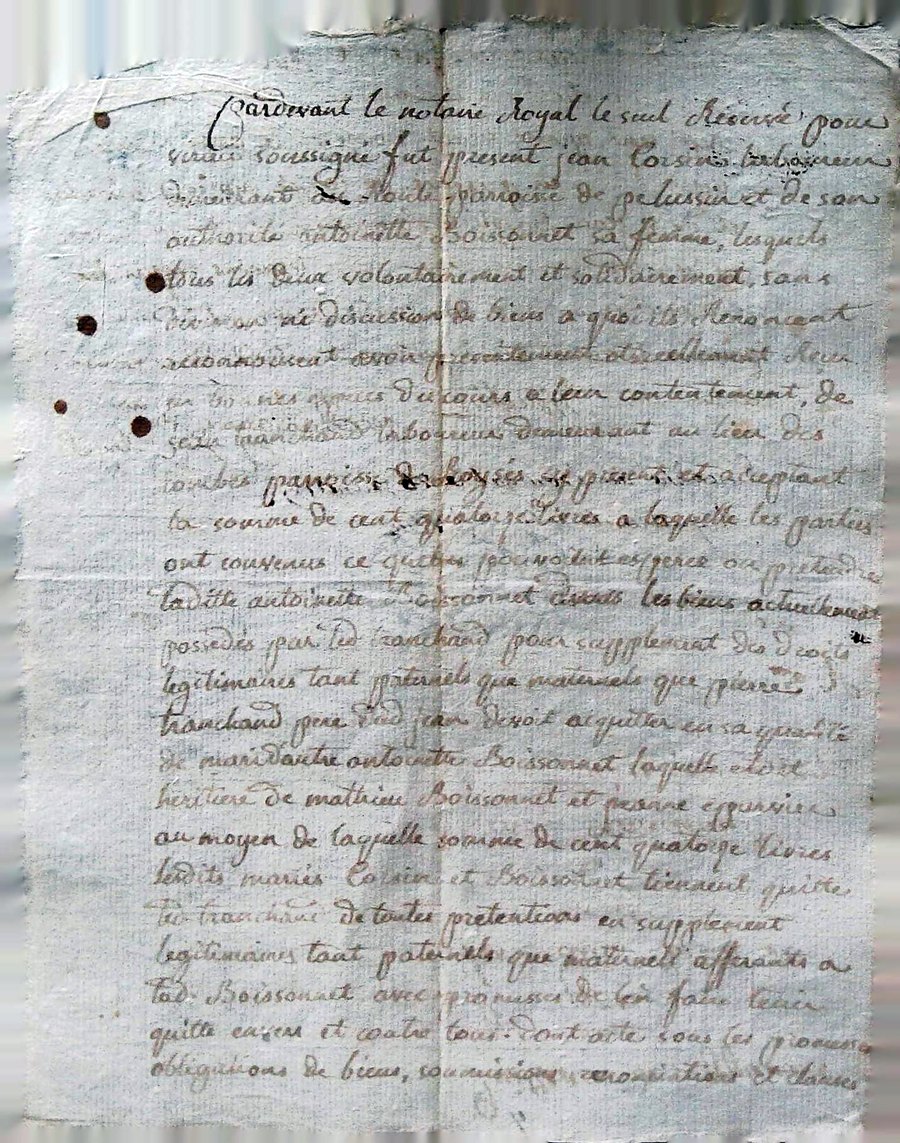 Pardevant le notaire Royal le seul Réservé pour
soussigné fut present jean Corsin laboureur
demeurant au paroisse de pelussin et de son
authorité antoinette Boissonnet sa femme, lesquels
tous les deux volontairement et solidairement, sans
division ni discussion de biens a quoi ils Renoncent
reconnoissent avoir presentement et reellement Reçu
en especes du cours a leur contentement, de
jean tranchand laboureur demeurant au lieu des
combes paroisse de present et acceptant
la somme de cent quatorze livres a laquelle les parties
ont convenus ce que pouvoit esperer ou pretendre
laditte antoinette Boissonnet dans les biens actuellement
possedés par led tranchand pour supplement des droits
legitimaires tant paternels que maternels que pierre
tranchand pere dud jean devoit acquitter en sa qualité
de mari d'autre antoinette Boissonnet laquelle etoit
heritiere de mathieu Boissonnet et jeanne
au moyen de laquelle somme de cent quatorze livres
lesdits mariés Corsin et Boissonnet tiennent quitte
led tranchand de toutes pretentions en supplement
legitimaires tant paternels que maternels afferants a
lad. Boissonnet avec promesses de l'en faire tenir
quitte envers et contre tous. dont acte sous les promesses
obligations de biens, soumissions, renonciations et clauses